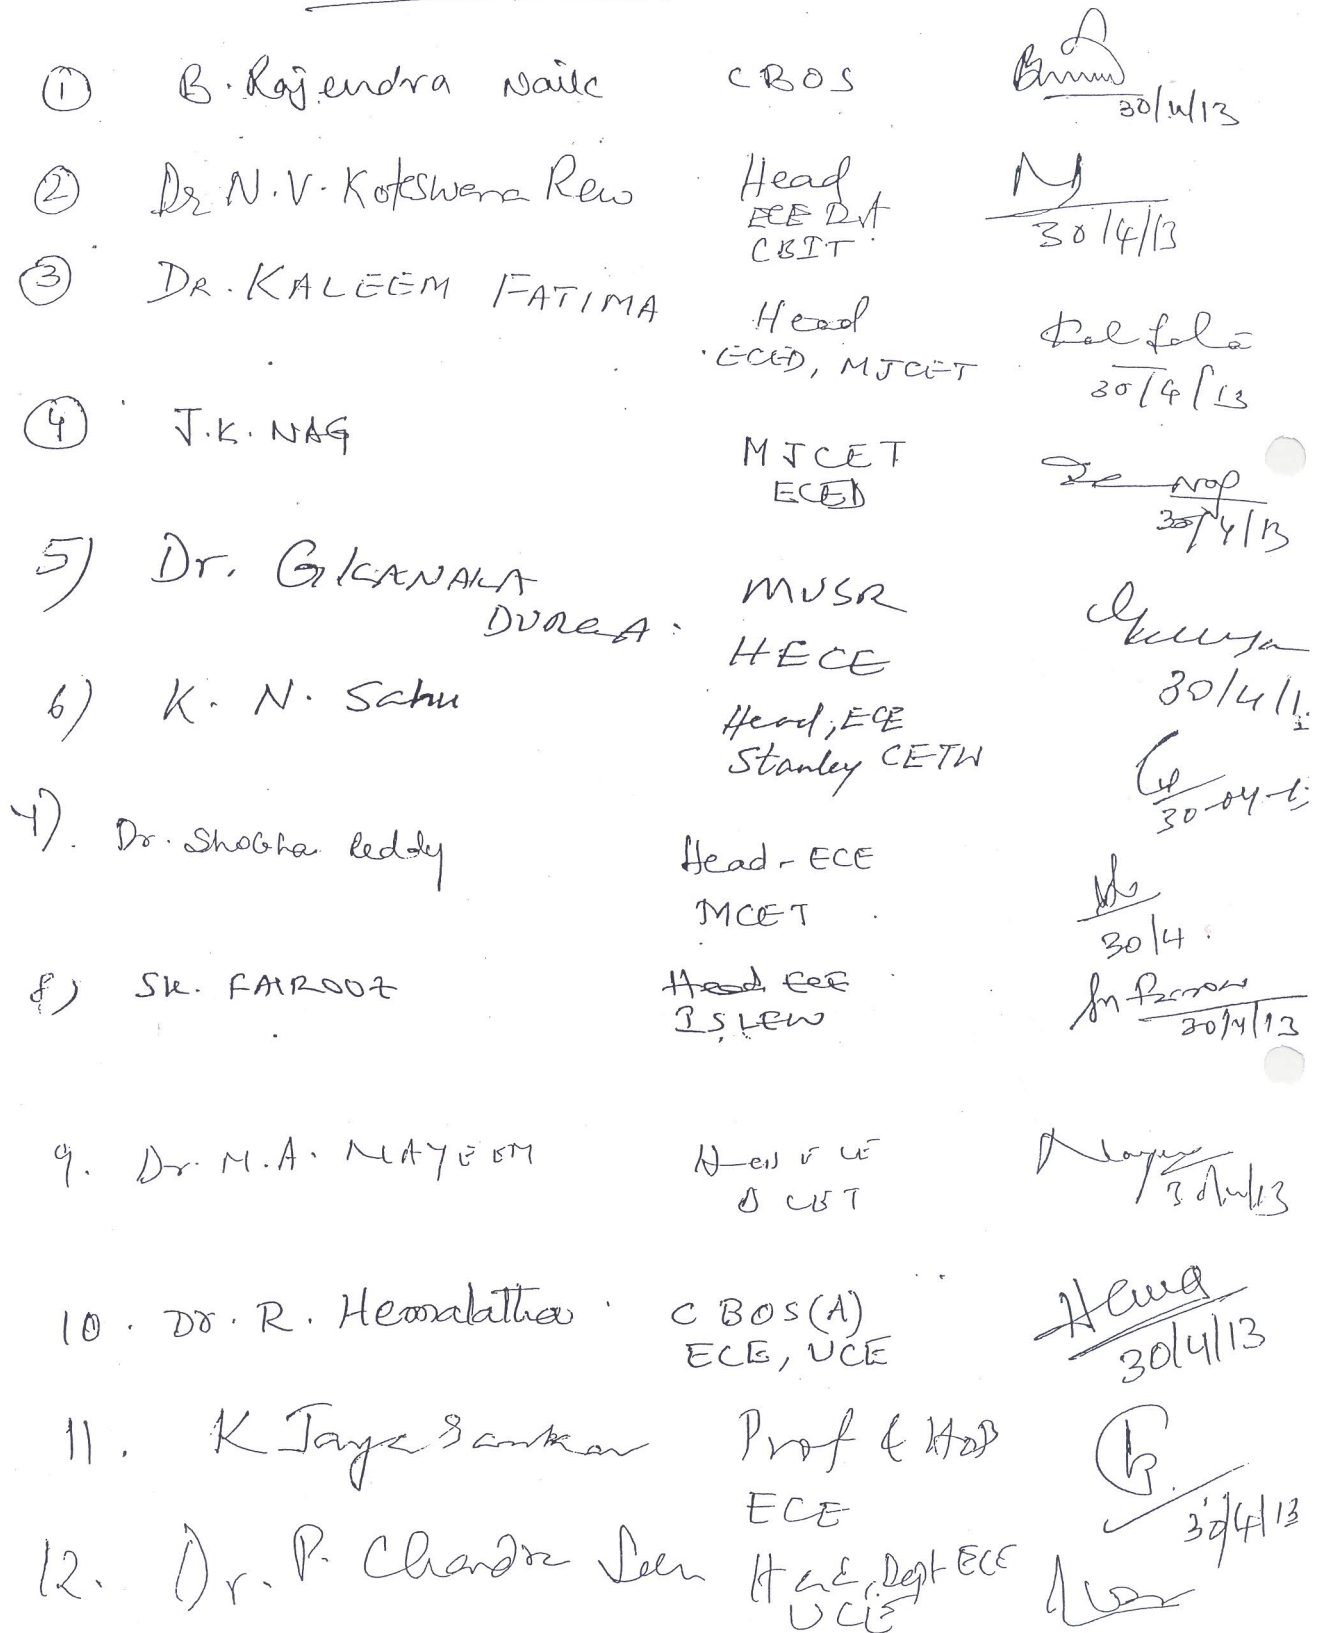 ① B. Rajendra Naik CBOS 30/4/13
② Dr N.V. Koteswara Rao Head
ECE Dpt
CBIT 30/4/13
③ DR. KALEEM FATIMA Head
ECED, MJCET 30/4/13
④ J.K. NAG MJCET
ECED 30/4/13
5) Dr. G KANAKA
DURGA MVSR
HECE 30/4/1
6) K. N. Sahu Head, ECE
Stanley CETW 30-04-1
7). Dr. Shobha Reddy Head - ECE
MCET 30/4.
8) SK. FAIROOZ Head ECE
ISLEW 30/4/13
9. Dr. M.A. NAYEEM Head ECE
DCET 30/4/13
10. Dr. R. Hemalatha CBOS(A)
ECE, UCE Hema
30/4/13
11. K Jaya Sankar Prof & HOD
ECE 30/4/13
12. Dr. P. Chandra Head, Dept ECE
UCE